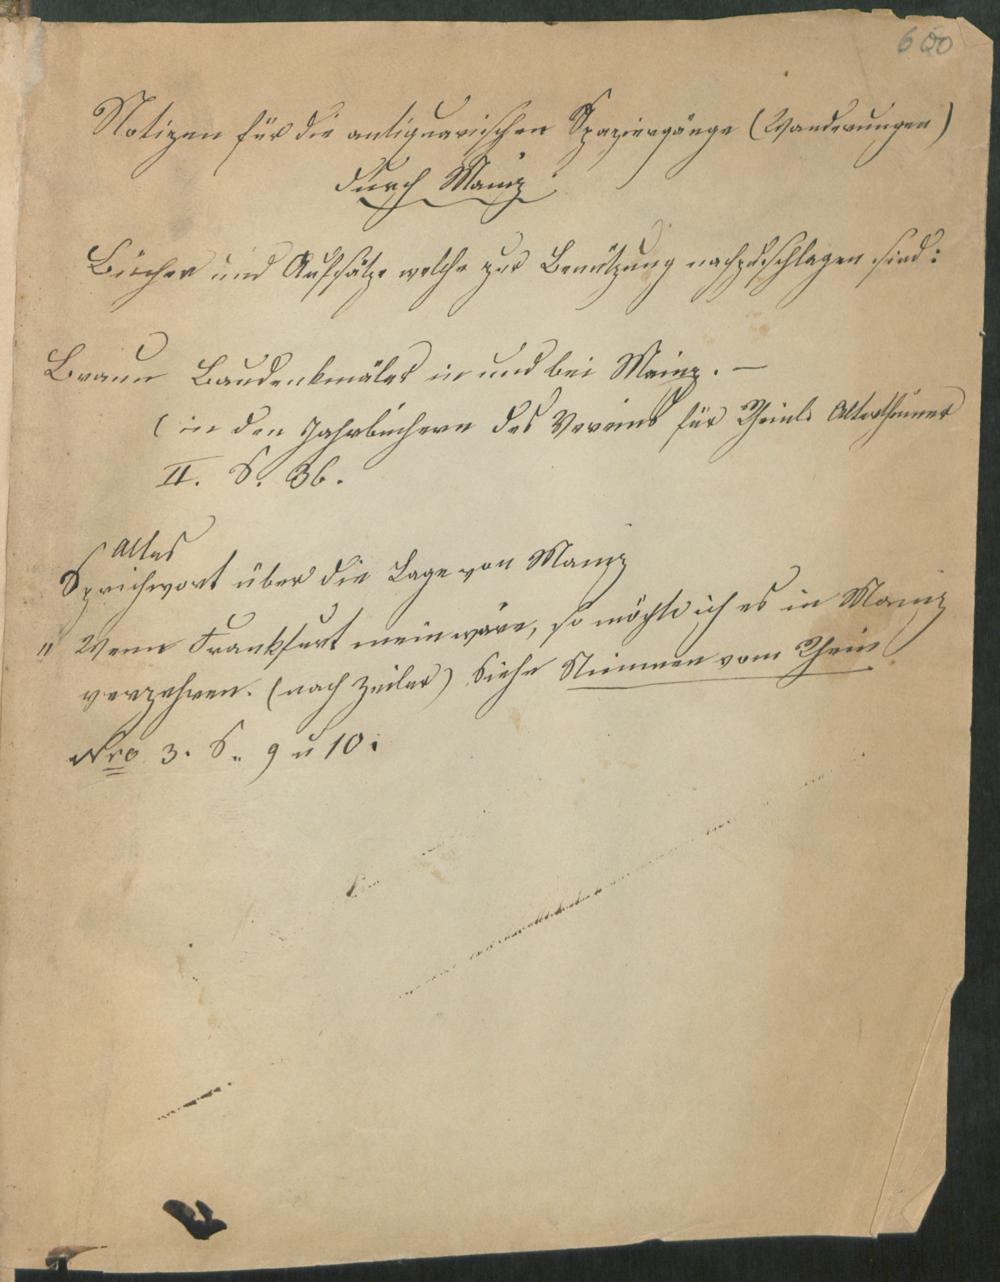 600
Notizen für die antiquarischen Spaziergänge (Wanderungen)
durch Mainz.
Bücher und Aufsätze welche zur Benützung nachzuschlagen sind:
Braun Baudenkmäler in und bei Mainz. —
(in den Jahrbüchern des Vereins für Rheinl. Alterthümer
II. S. 36.
Altes
Sprichwort über die Lage von Mainz
" Wenn Frankfurt mein wäre, so möchte ich es in Mainz
verzehren. (nach Zeiler) Siehe Stimmen vom Rhein
Nro 3. S. 9 u 10.